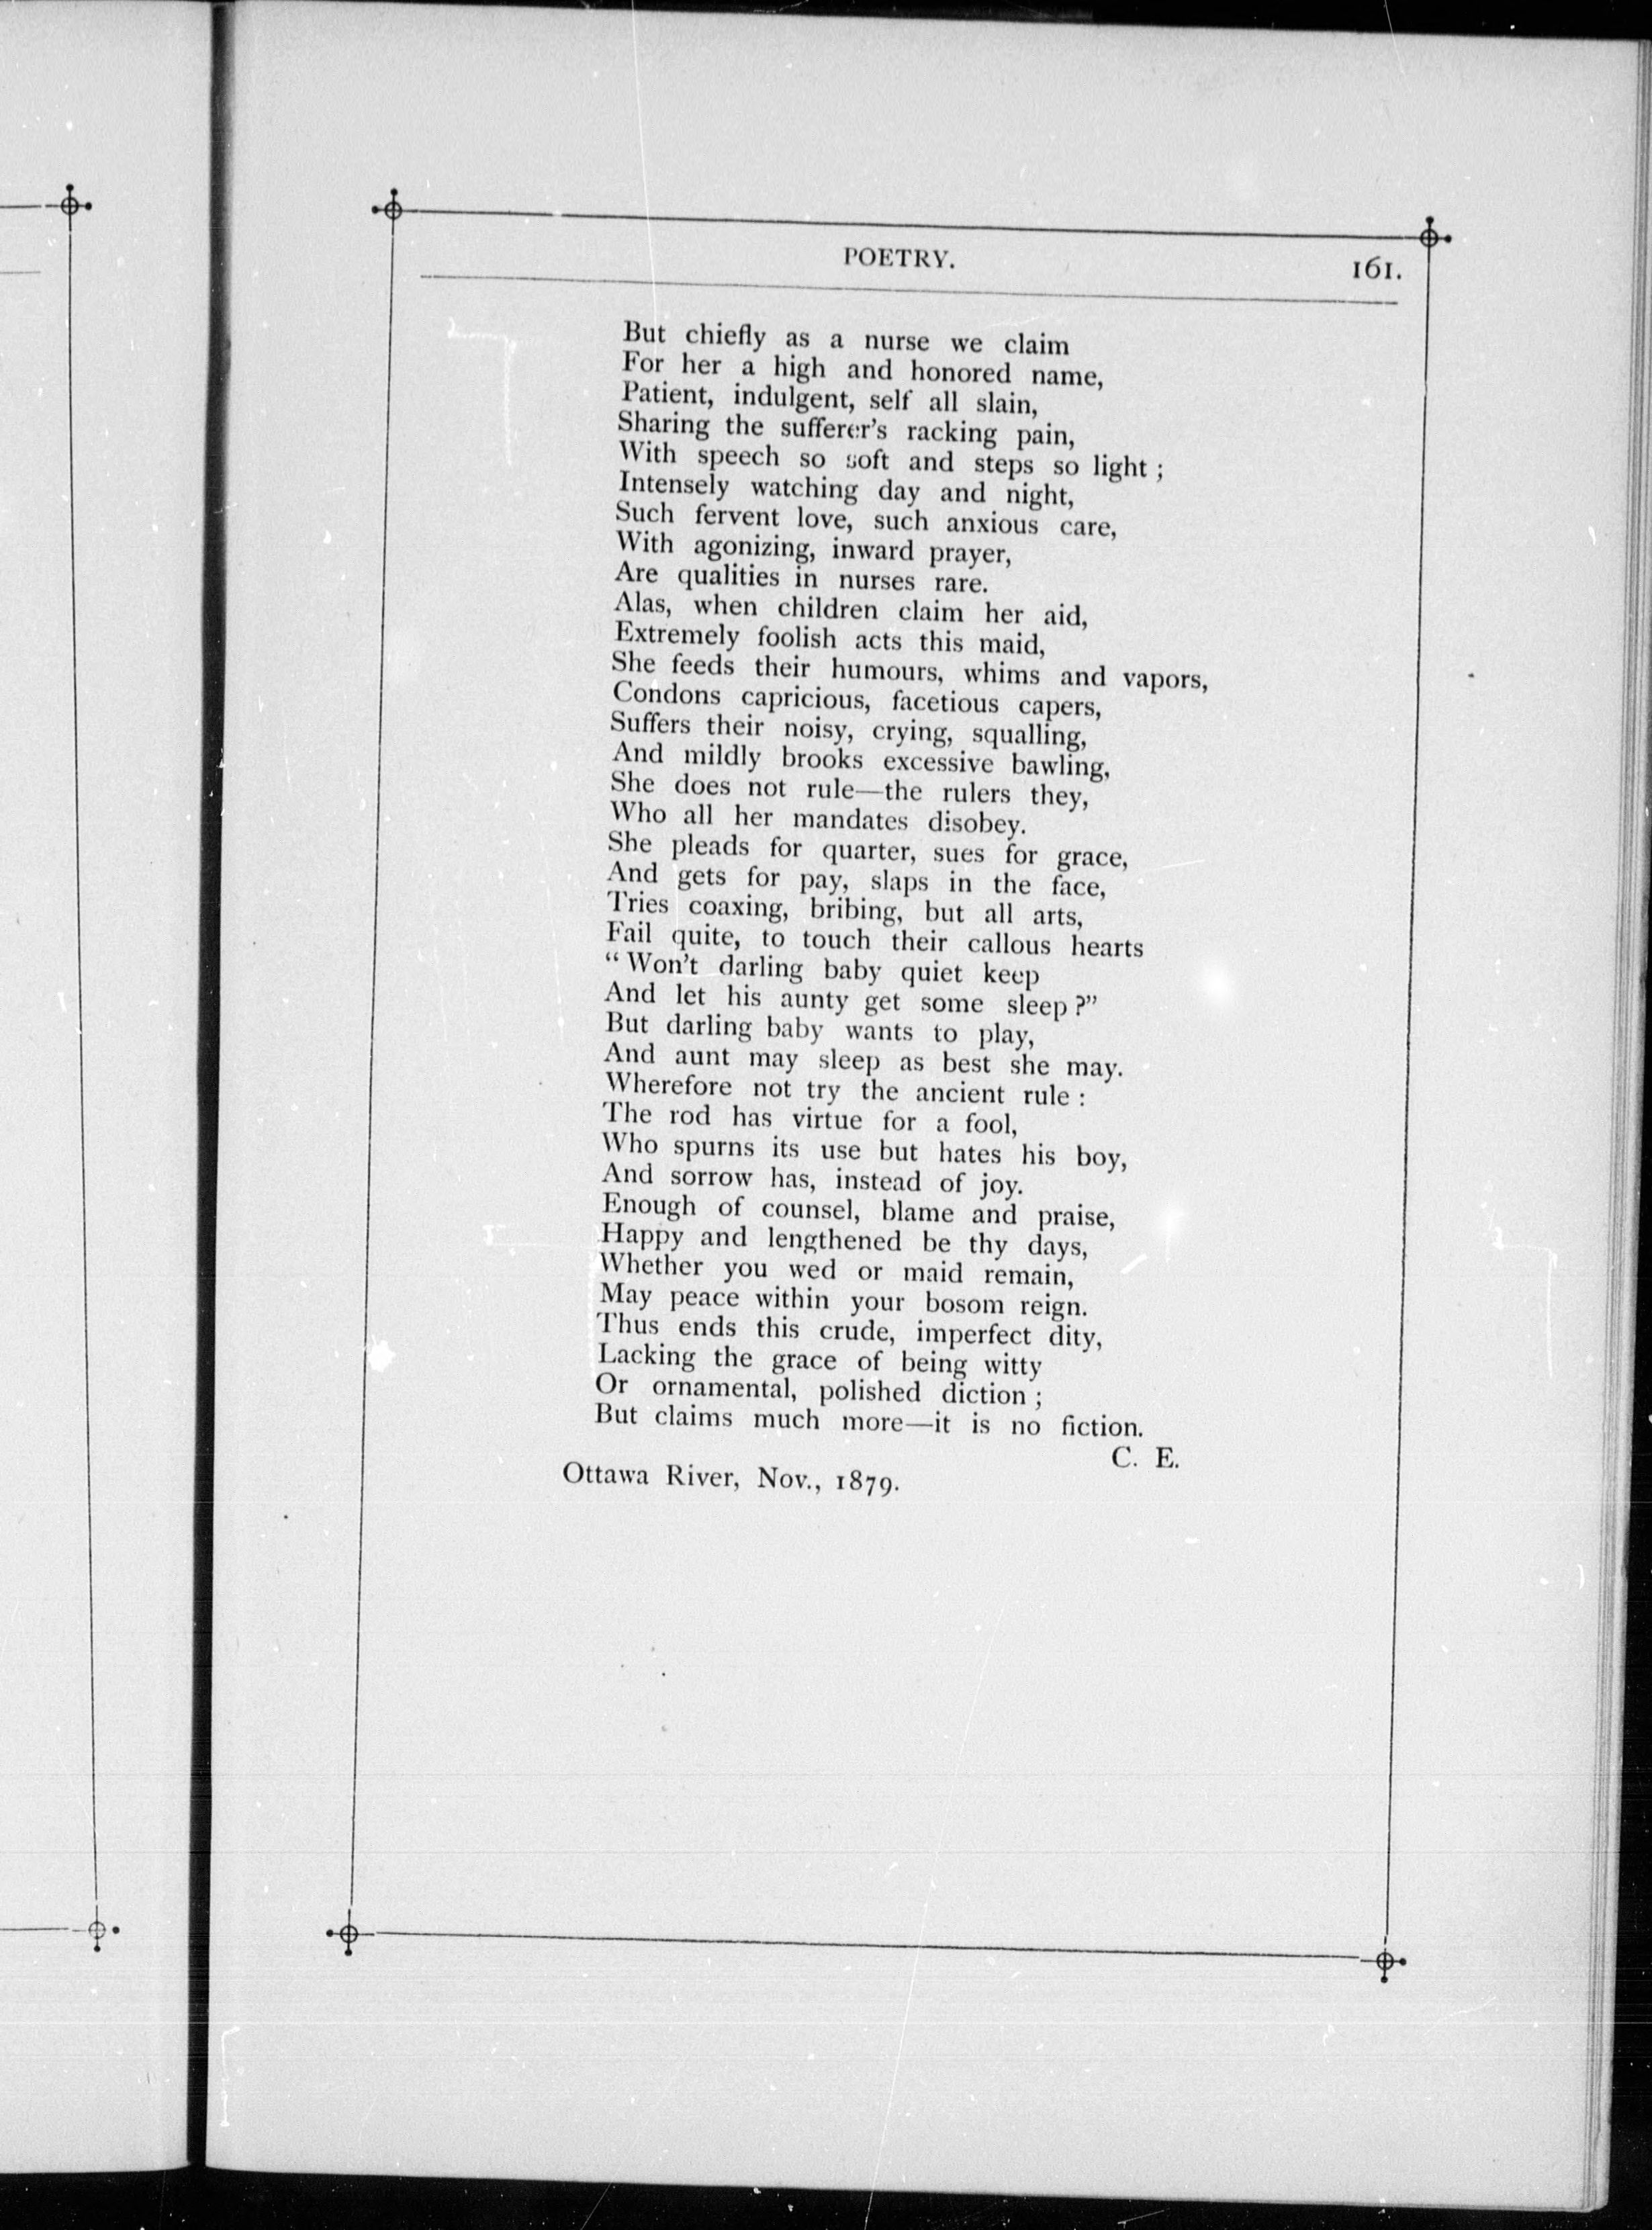 POETRY.
161.
But chiefly as a nurse we claim
For her a high and honored name,
Patient, indulgent, self all slain,
Sharing the sufferer's racking pain,
With speech so soft and steps so light ;
Intensely watching day and night,
Such fervent love, such anxious care,
With agonizing, inward prayer,
Are qualities in nurses rare.
Alas, when children claim her aid,
Extremely foolish acts this maid,
She feeds their humours, whims and vapors,
Condons capricious, facetious capers,
Suffers their noisy, crying, squalling,
And mildly brooks excessive bawling,
She does not rule—the rulers they,
Who all her mandates disobey.
She pleads for quarter, sues for grace,
And gets for pay, slaps in the face,
Tries coaxing, bribing, but all arts,
Fail quite, to touch their callous hearts
“ Won't darling baby quiet keep
And let his aunty get some sleep ?”
But darling baby wants to play,
And aunt may sleep as best she may.
Wherefore not try the ancient rule :
The rod has virtue for a fool,
Who spurns its use but hates his boy,
And sorrow has, instead of joy.
Enough of counsel, blame and praise,
Happy and lengthened be thy days,
Whether you wed or maid remain,
May peace within your bosom reign.
Thus ends this crude, imperfect dity,
Lacking the grace of being witty
Or ornamental, polished diction ;
But claims much more—it is no fiction.
C. E.
Ottawa River, Nov., 1879.